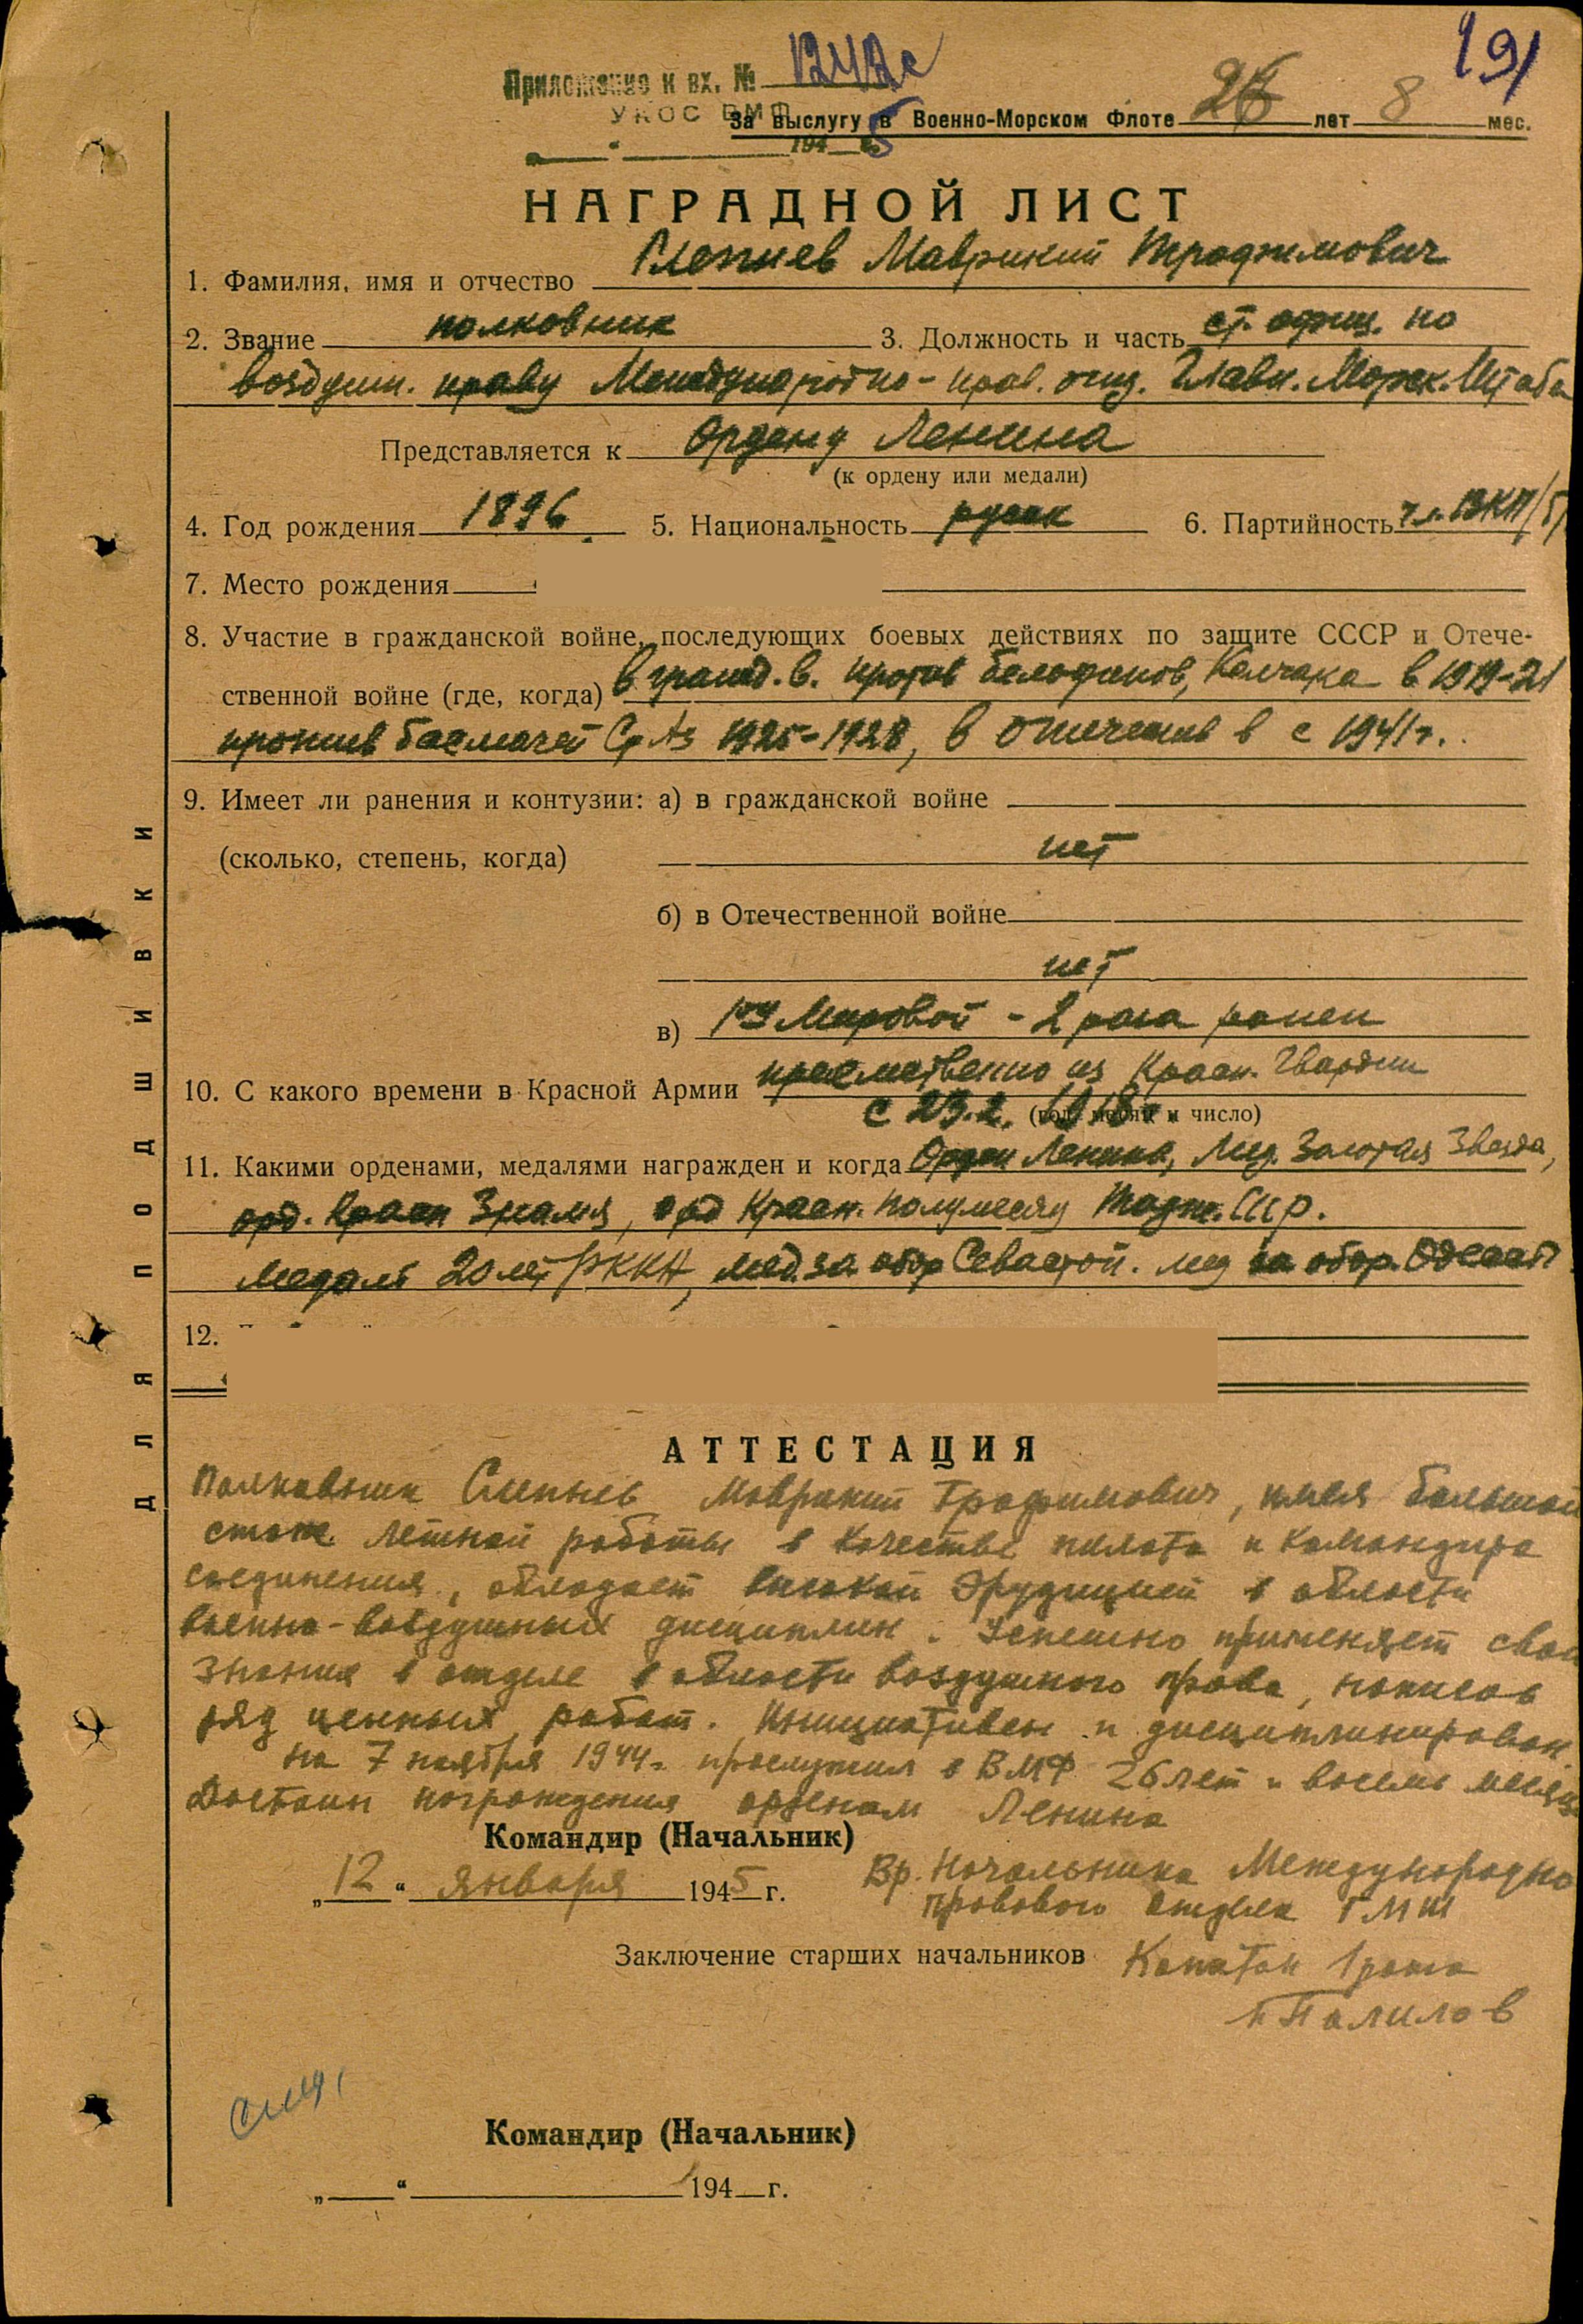 191
Приложение к вх. №
УКОС ВМФ
За выслугу в Военно-Морском Флоте 26 лет 8 мес.
194 5
НАГРАДНОЙ ЛИСТ
1. Фамилия, имя и отчество Слепнев Маврикий Трофимович
2. Звание полковник 3. Должность и часть ст. офиц. по
воздушн. праву Международно-прав. отд. Главн. Морск. Штаба
Представляется к Ордену Ленина
(к ордену или медали)
4. Год рождения 1896 5. Национальность русск 6. Партийность чл. ВКП/б/
7. Место рождения
8. Участие в гражданской войне, последующих боевых действиях по защите СССР и Отече-
ственной войне (где, когда) в гражд. в. против белофинов, Колчака в 1919-21
против басмачей Ср Аз 1925-1928, в отечествен в с 1941 г.
9. Имеет ли ранения и контузии: а) в гражданской войне
(сколько, степень, когда) нет
б) в Отечественной войне
нет
в) Мировой - 2 раза ранен
10. С какого времени в Красной Армии преемственно из Красн. Гвардии
с 23.2. 1918 г. (год, месяц и число)
11. Какими орденами, медалями награжден и когда Орден Ленина, Мед. Золотая Звезда,
орд. Красн Знамя, орд Красн. полумесяц Тадж. ССР.
медаль 20 лет РККА, мед. за обор Севастоп. мед за обор. Одессы
12.
ДЛЯ ПОДШИВКИ
АТТЕСТАЦИЯ
Полковник Слепнев Маврикий Трофимович, имея большой
стаж летной работы в качестве пилота и командира
соединения, обладает высокой эрудицией в области
военно-воздушных дисциплин. Успешно применяет свои
знания в отделе в области воздушного права, написав
ряд ценных работ. Инициативен и дисциплинирован
на 7 ноября 1944 г. прослужил в ВМФ 26 лет и восемь месяц
Достоин награждения орденом Ленина
Командир (Начальник)
„12“ января 1945 г.
Вр. Начальника Международно
правового отдела ГМШ
Заключение старших начальников Капитан 1 ранга
Командир (Начальник)
„ “ 194 г.